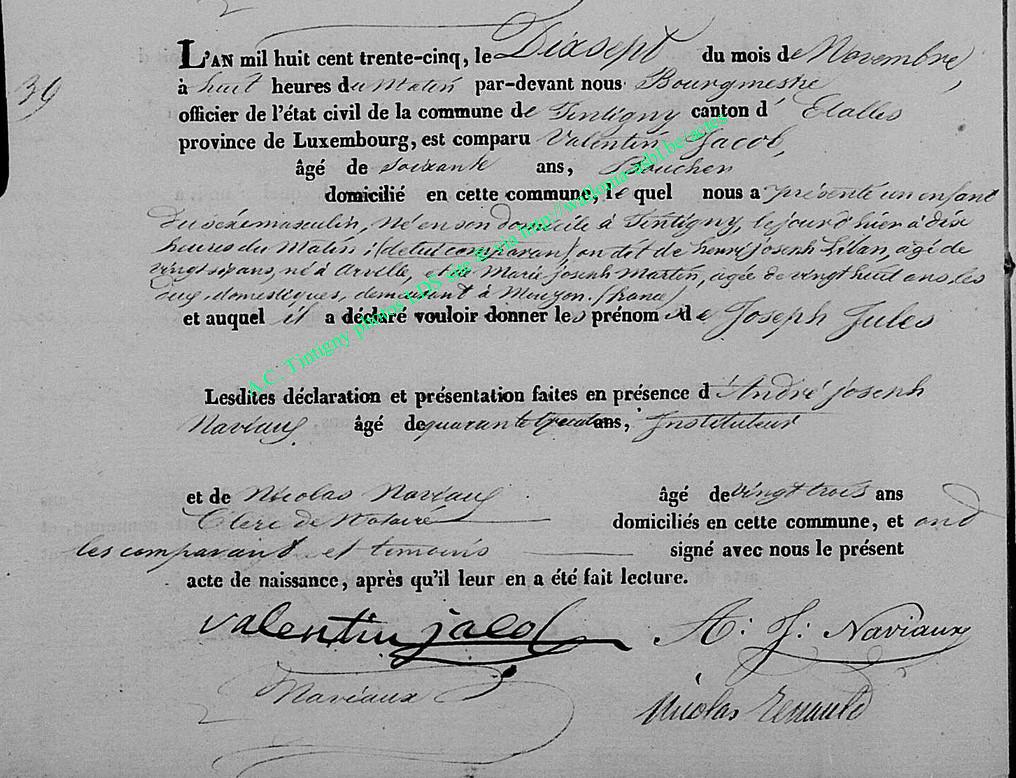 39
L'AN mil huit cent trente-cinq, le Dixsept du mois de Novembre,
à huit heures du Matin par-devant nous Bourgmestre
officier de l'état civil de la commune de Tintigny canton d' Etalles
province de Luxembourg, est comparu Valentin Jacob,
âgé de soixante ans, Boucher
domicilié en cette commune, le quel nous a présenté un enfant
du séxe masculin, né en son domicile à Tintigny, le jour d'hier à dix
heures du Matin; (de lui comparant) on dit de henri Joseph Liban, agé de
vingt six ans, né à Arville, et de Marie Joseph Martin, agée de vingt huit ans, les
domestiques, demeurant à Mouzon. (france)
et auquel il a déclaré vouloir donner les prénom de Joseph Jules
Lesdites déclaration et présentation faites en présence d'André joseph
Naviaux âgé de quarante ans, Instituteur
et de Nicolas Naviaux âgé de vingt trois ans
Clerc de Notaire domiciliés en cette commune, et ont
les comparant et temoins signé avec nous le présent
acte de naissance, après qu'il leur en a été fait lecture.
valentin jacob A: J: Naviaux
Naviaux
Nicolas Renauld
A.C. Tintigny photos LDS site & via http://wallonia-asbl.be/actes